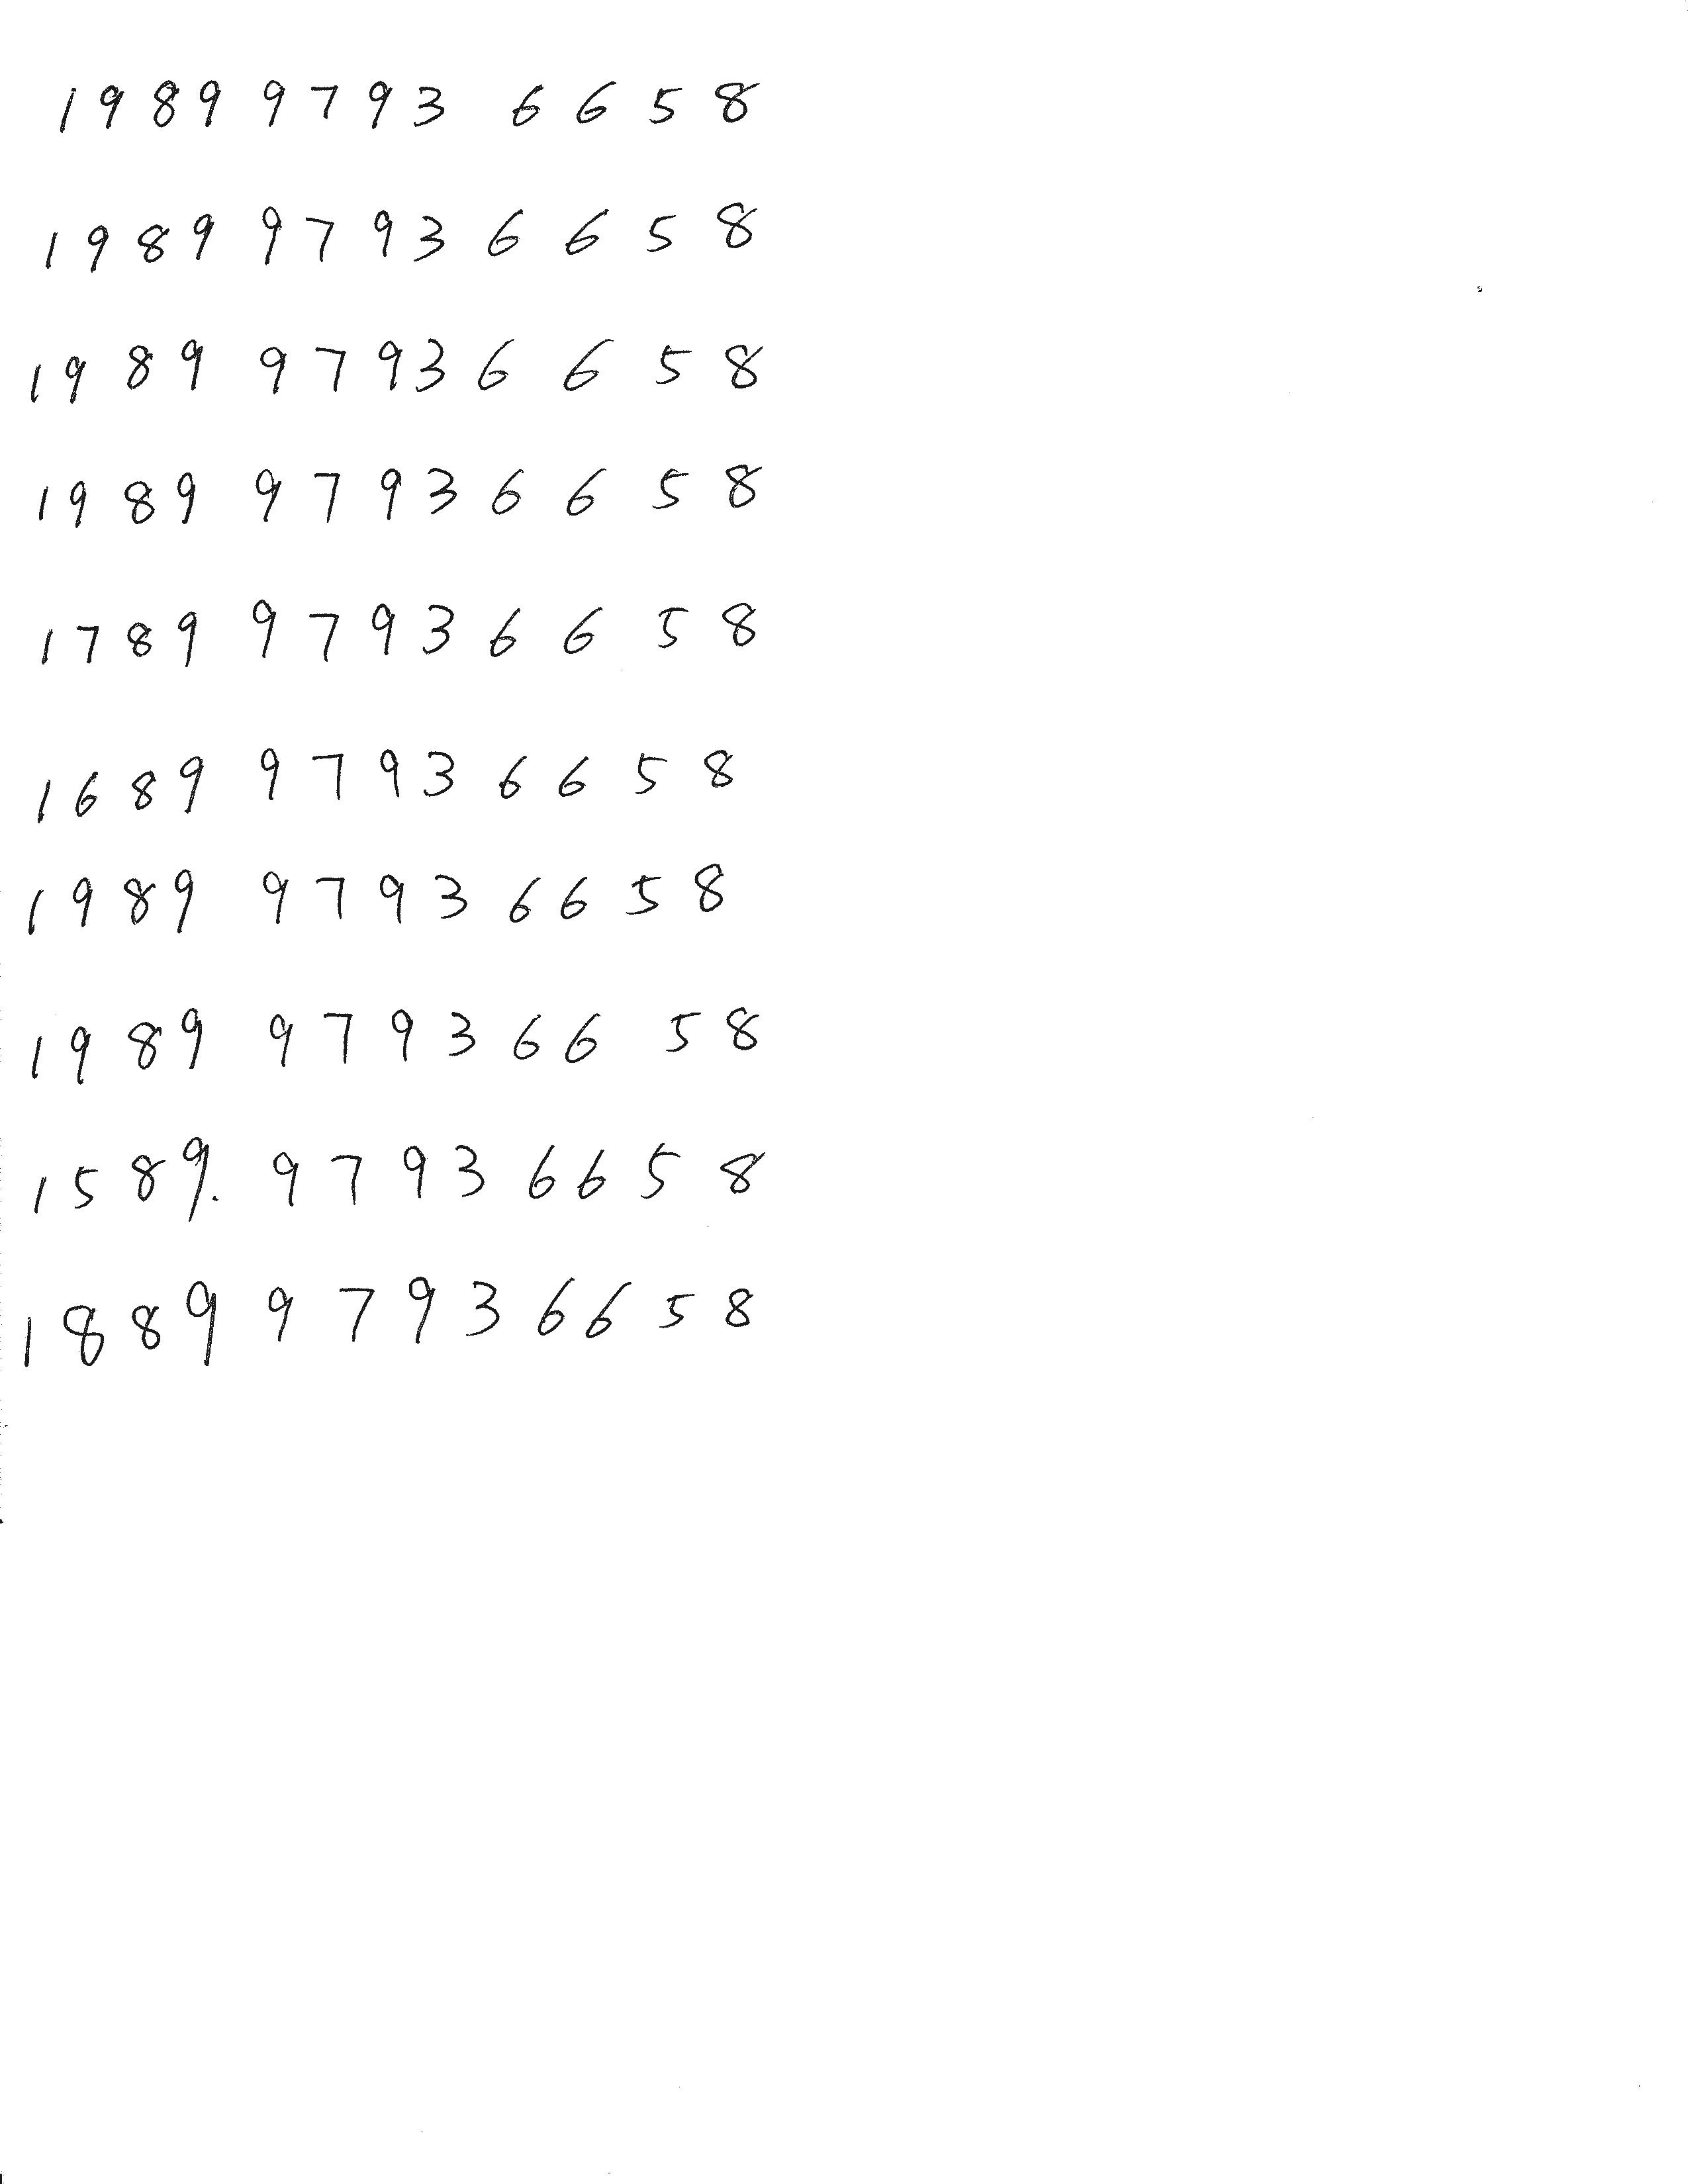 1989 9793 6658
1989 9793 6658
1989 9793 6658
1989 9793 6658
1789 9793 6658
1689 9793 6658
1989 9793 6658
1989 9793 6658
1589. 9793 6658
1889 9793 6658